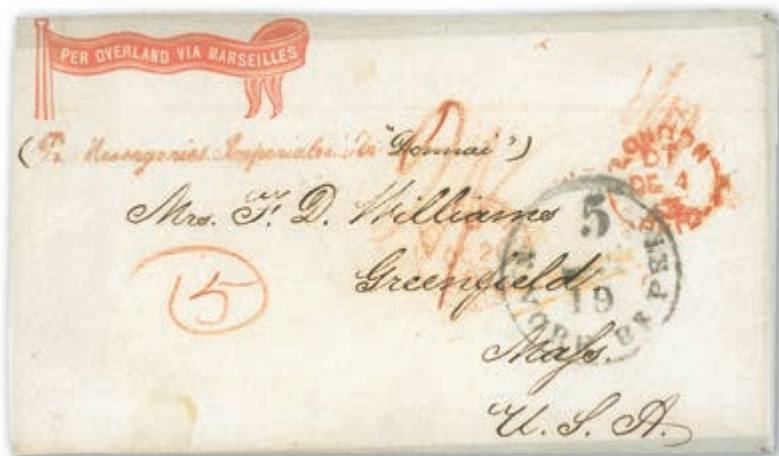 PER OVERLAND VIA MARSEILLES
(Pr. Messageries Imperiales Str "Donnai")
Mrs. F. D. Williams
Greenfield.
Mass.
U. S. A.
15
LONDON
DE 4
PAID
5
19
N. YORK BR PKT